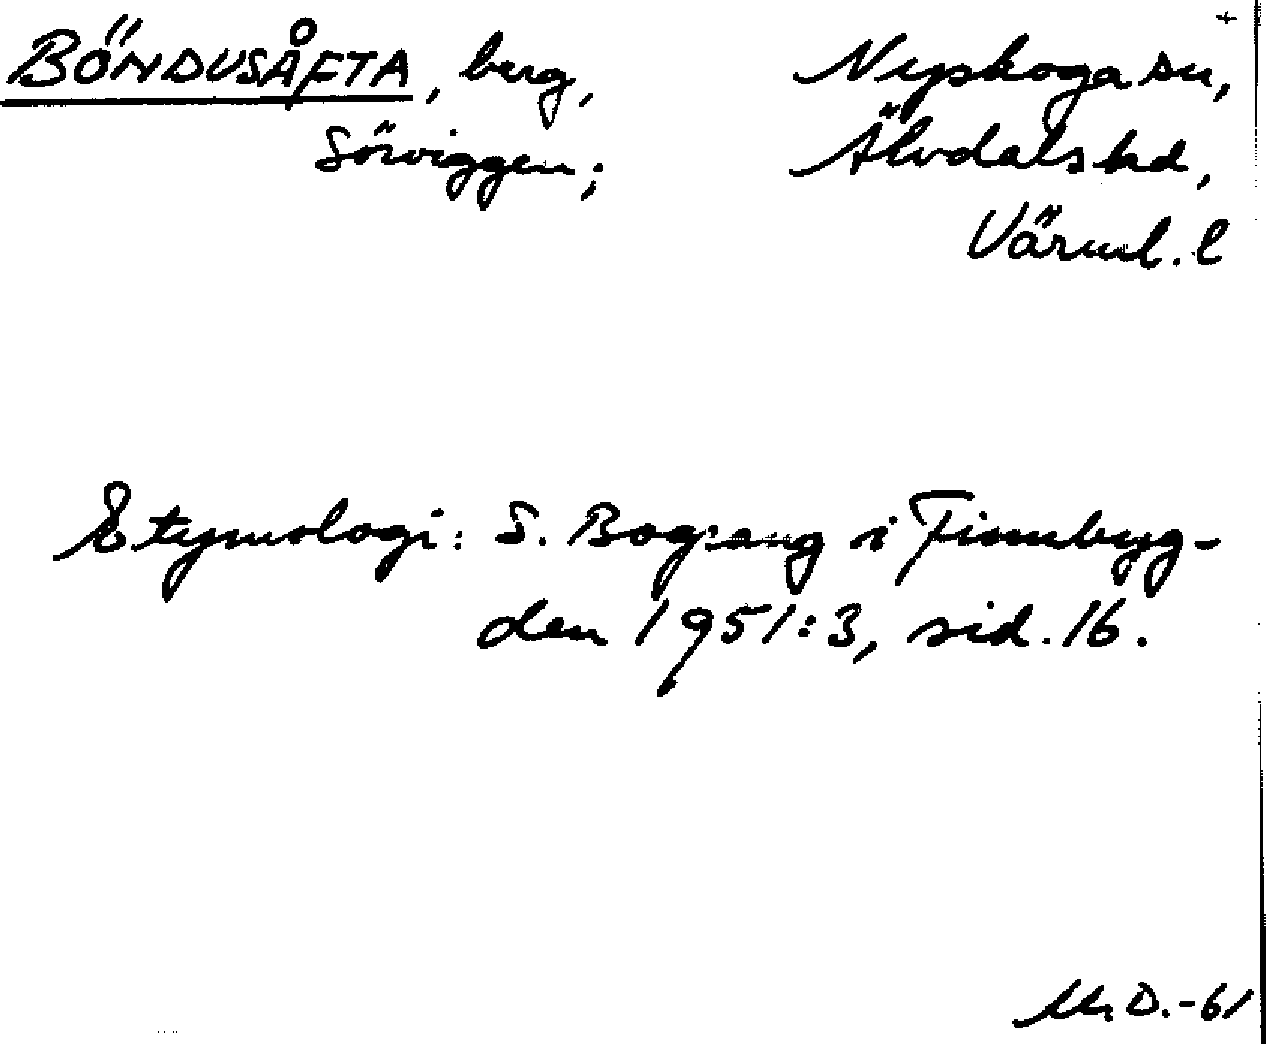 BÖNDUSÅFTA, berg,
Sörviggen;
Nyskoga sn,
Älvdals hd,
Värml. l
Etymologi: S. Bograng i Finnbyg-
den 1951:3, sid. 16.
M. D. -61